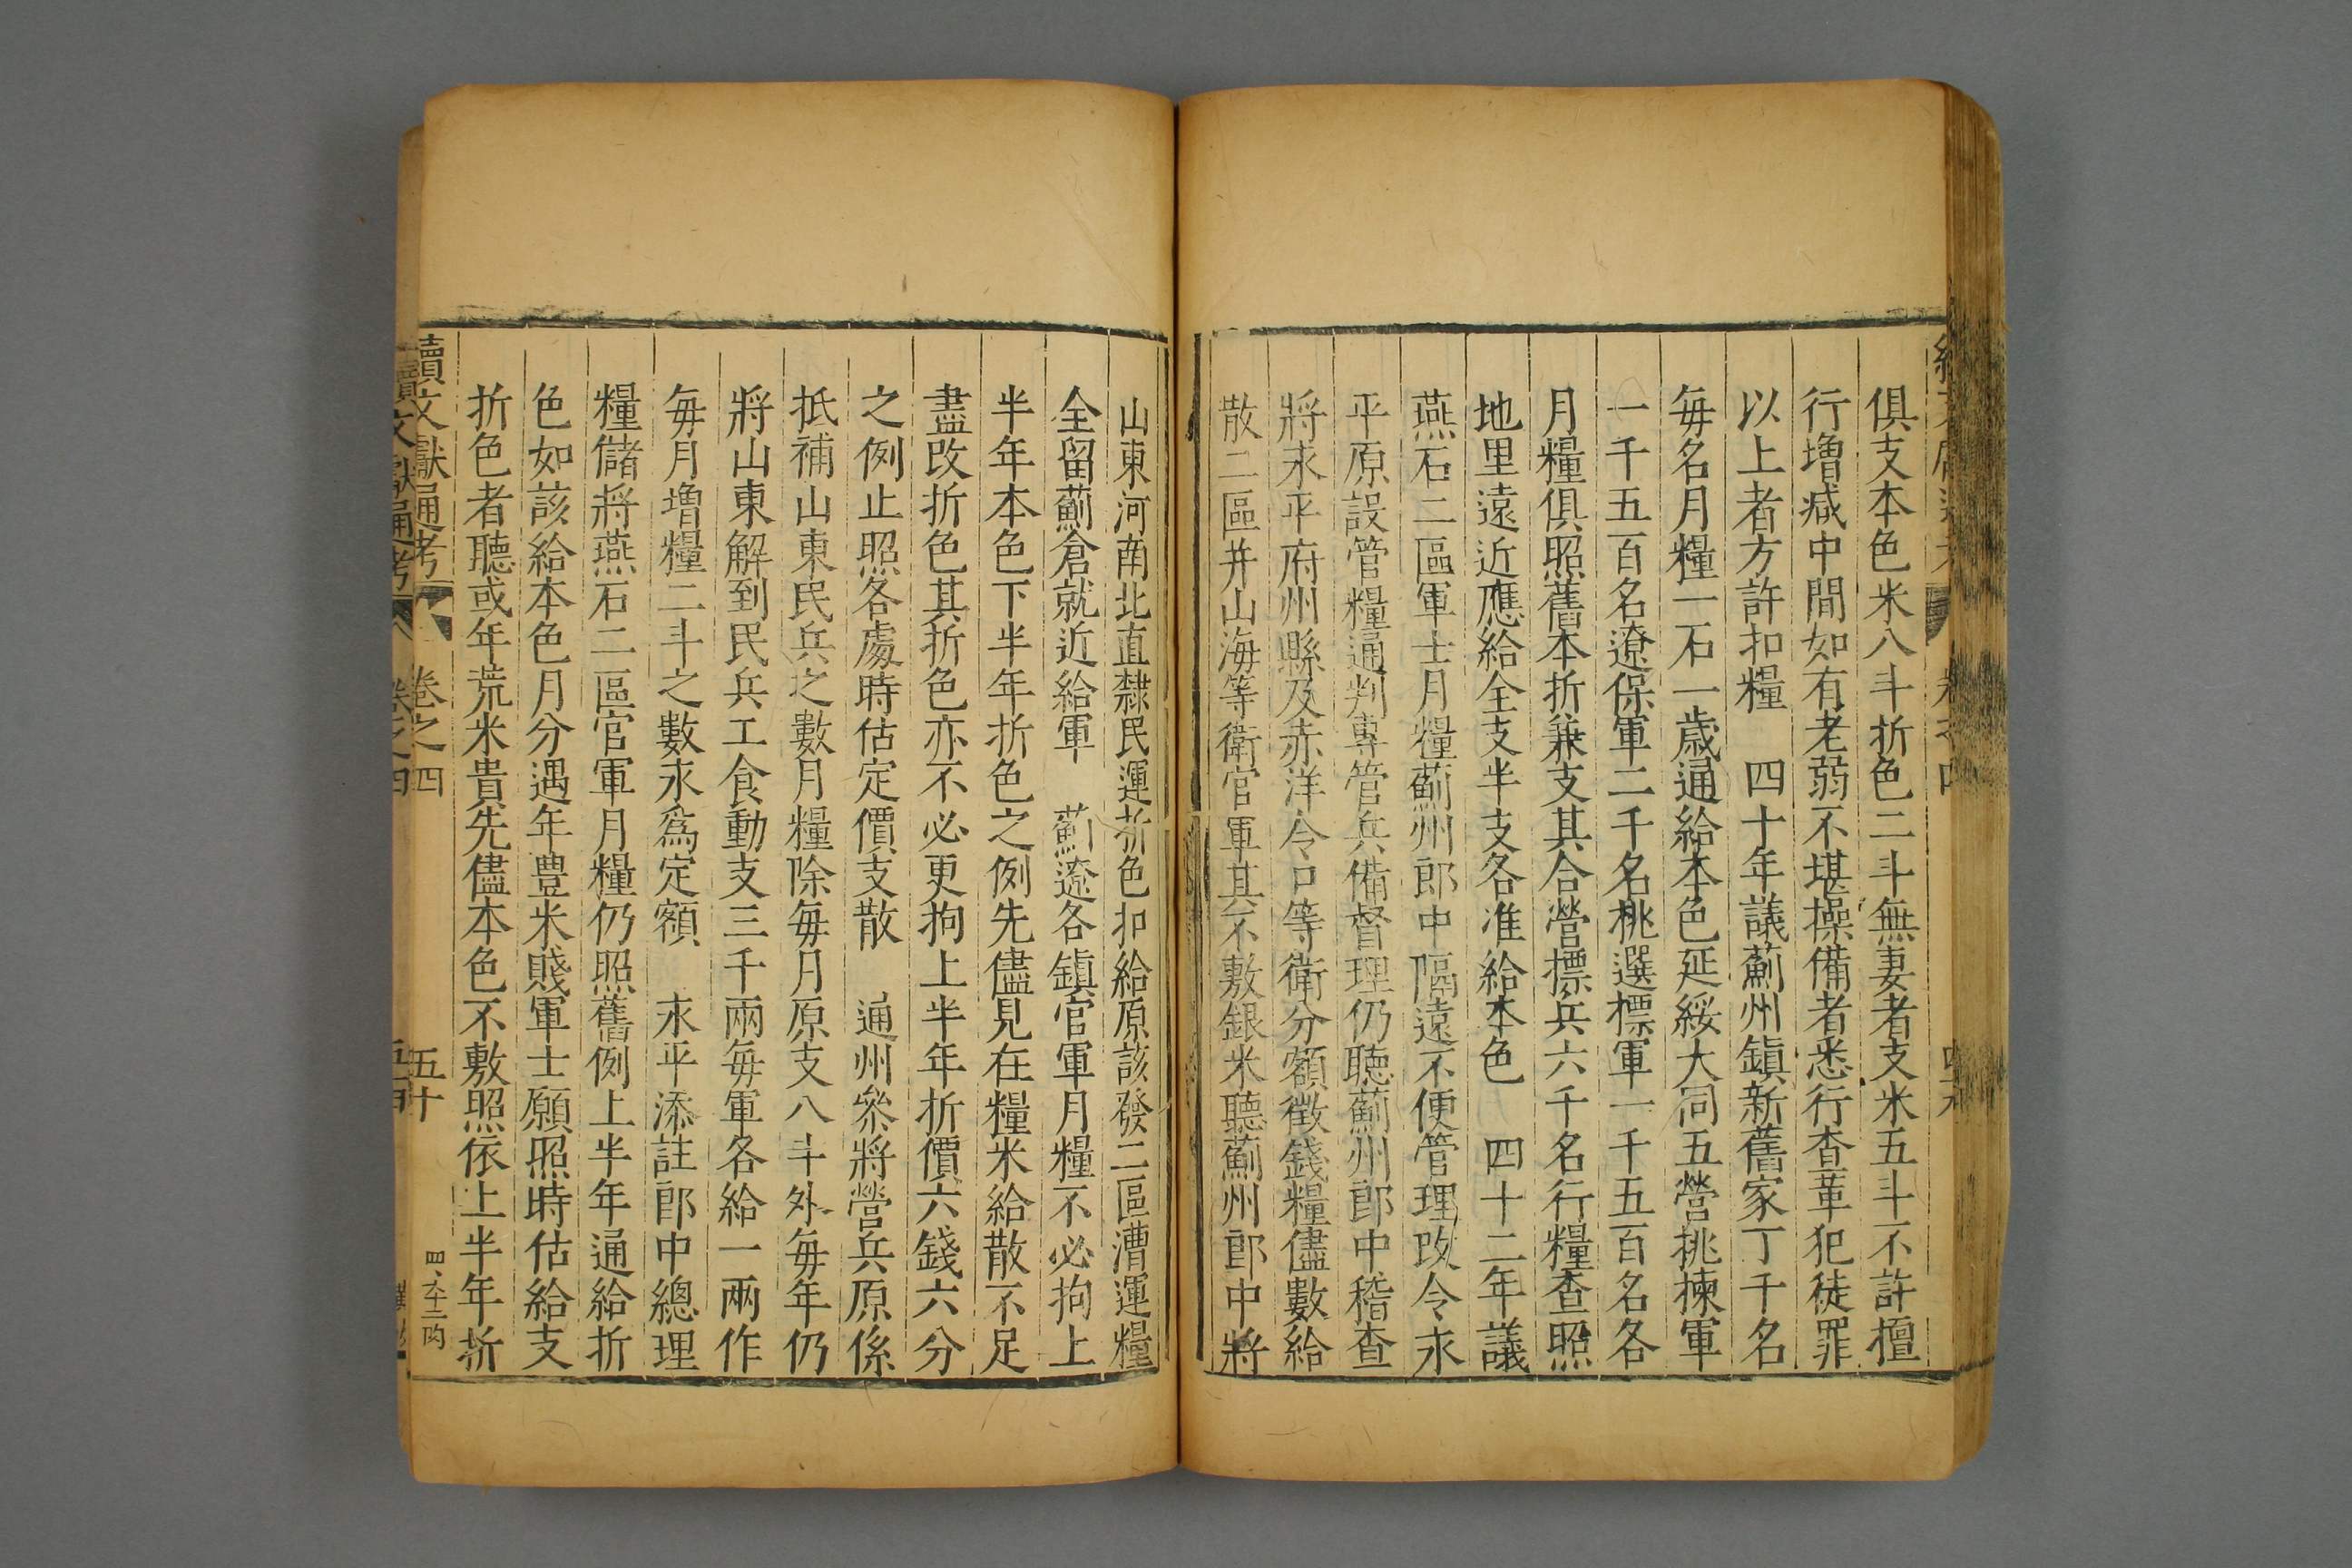 俱支本色米八斗折色二斗無妻者支米五斗不許擅
行增减中間如有老弱不堪操備者悉行查革犯徒罪
以上者方許扣糧　四十年議薊州鎮新舊家丁千名
每名月糧一石一歲通給本色延綏大同五營挑揀軍
一千五百名遼保軍二千名挑選標軍一千五百名各
月糧俱照舊本折兼支其合營標兵六千名行糧查照
地里遠近應給全支半支各准給本色　四十二年議
燕石二區軍士月糧薊州郎中隔遠不便管理改令永
平原設管糧通判專管兵備督理仍聽薊州郎中稽查
將永平府州縣及赤洋令口等衛分額徵錢糧儘數給
散二區并山海等衛官軍其不敷銀米聽薊州郎中將
山東河南北直隸民運折色扣給原該發二區漕運糧
全留薊倉就近給軍　薊遼各鎮官軍月糧不必拘上
半年本色下半年折色之例先儘見在糧米給散不足
盡改折色其折色亦不必更拘上半年折價六錢六分
之例止照各處時估定價支散　通州叅將營兵原係
抵補山東民兵之數月糧除每月原支八斗外每年仍
將山東解到民兵工食動支三千兩每軍各給一兩作
每月增糧二斗之數永爲定額　永平添註郎中總理
糧儲將燕石二區官軍月糧仍照舊例上半年通給折
色如該給本色月分遇年豊米賤軍士願照時估給支
折色者聽或年荒米貴先儘本色不敷照依上半年折
續文獻通考　卷之四　五十